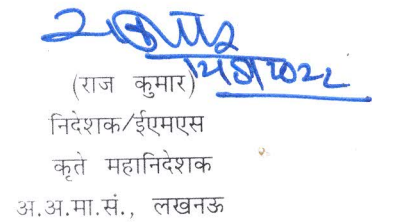 (राज कुमार)
निदेशक/ईएमएस
कृते महानिदेशक
अ.अ.मा.सं., लखनऊ